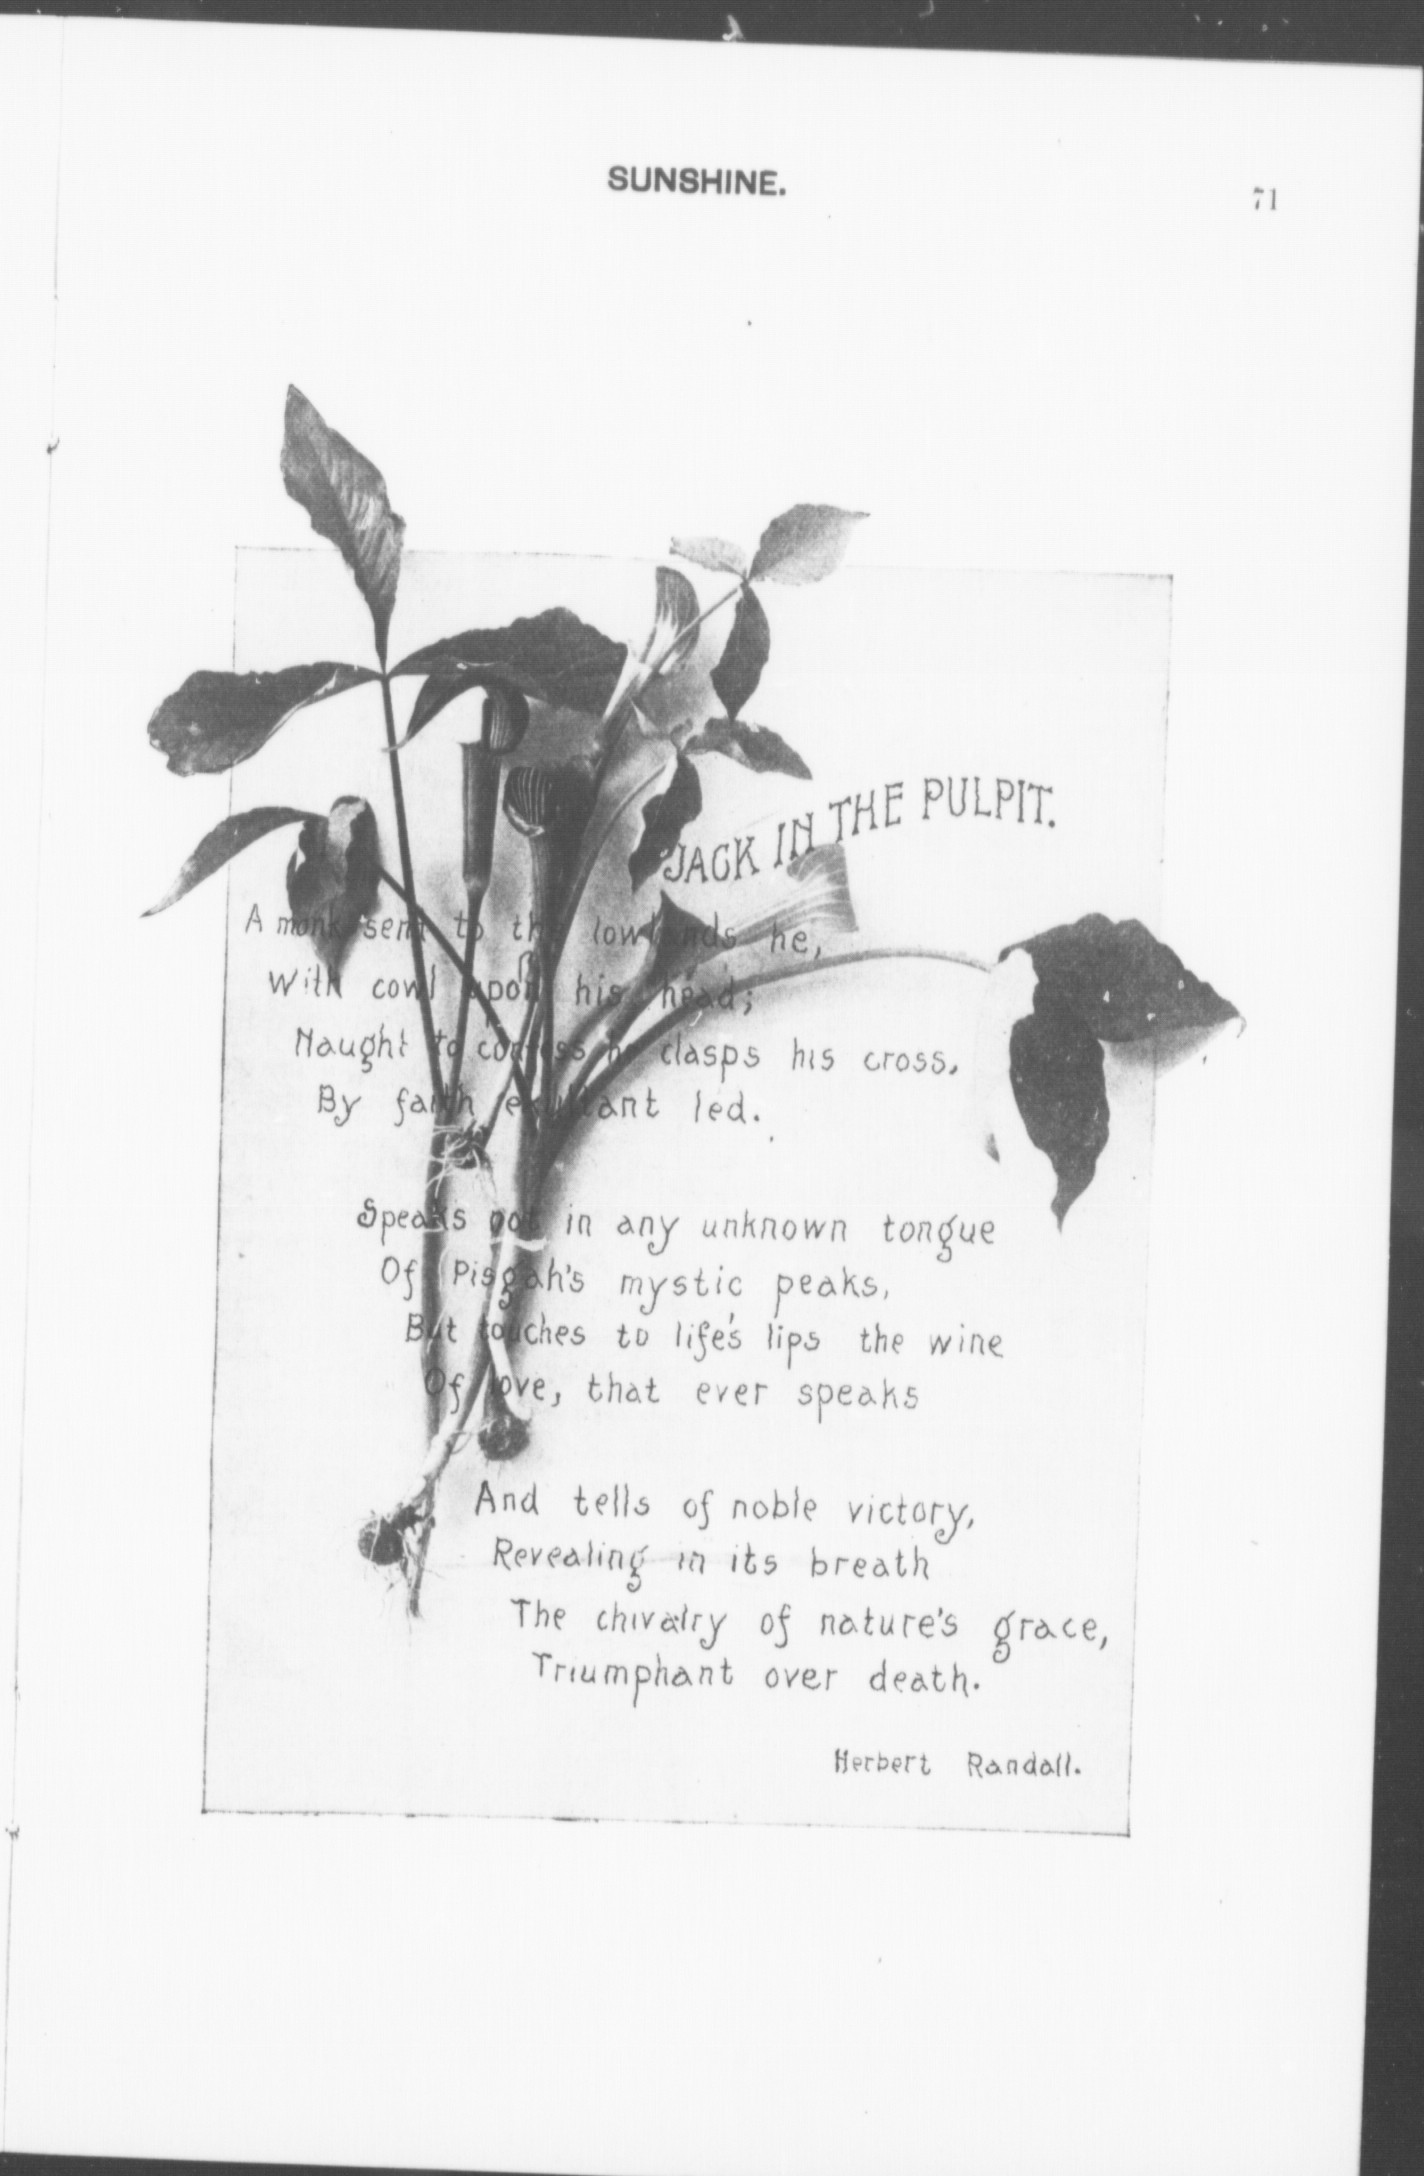 SUNSHINE.
71
JACK IN THE PULPIT.
A monk sent to the lowlands he,
With cowl upon his head;
Naught to confess he clasps his cross,
By faith exultant led.
Speaks not in any unknown tongue
Of Pisgah's mystic peaks,
But touches to life's lips the wine
Of love, that ever speaks
And tells of noble victory,
Revealing in its breath
The chivalry of nature's grace,
Triumphant over death.
Herbert Randall.